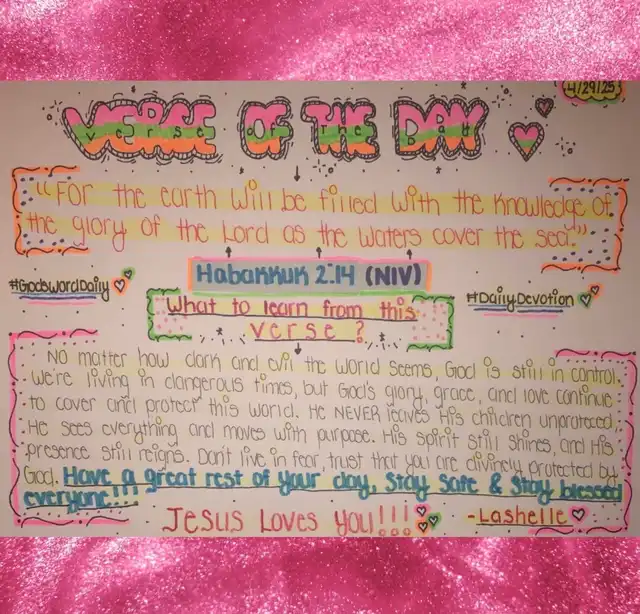 4/29/25
VERSE OF THE DAY
"For the earth will be filled with the knowledge of
the glory of the Lord as the waters cover the sea."
Habakkuk 2:14 (NIV)
#GodsWordDaily
#DailyDevotion
What to learn from this
verse?
No matter how dark and evil the world seems, God is still in control.
We're living in dangerous times, but God's glory, grace, and love continue
to cover and protect this world. He NEVER leaves His children unprotected.
He sees everything and moves with purpose. His spirit still shines, and His
presence still reigns. Don't live in fear, trust that you are divinely protected by
God. Have a great rest of your day, Stay Safe & Stay blessed
everyone!!!
Jesus Loves You!!!
-Lashelle